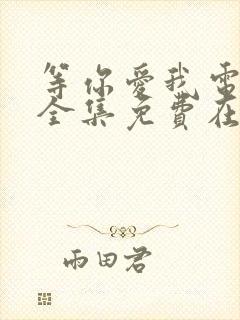 等你愛我電
全集免費在
雨田君